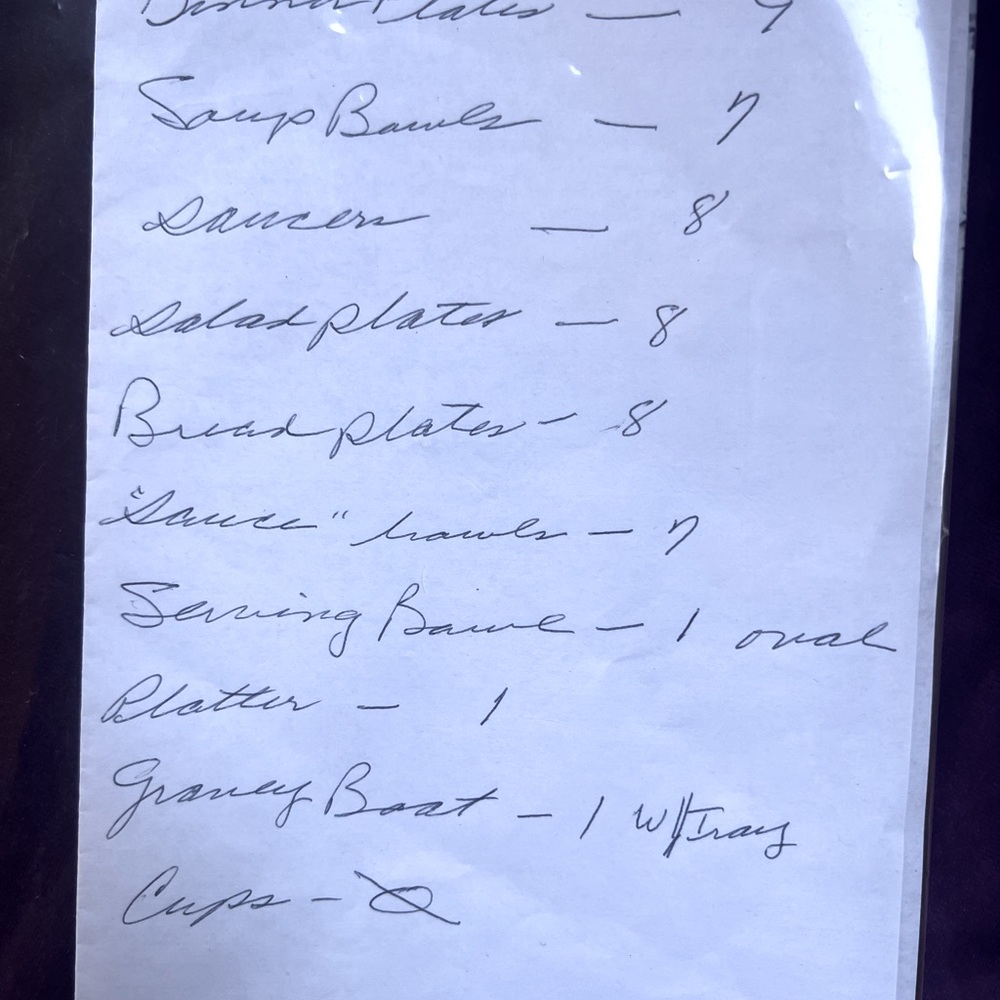 Dinner Plates —
Soup Bowls — 7
Saucers — 8
Salad plates — 8
Bread plates - 8
"Sauce" bowls - 7
Serving Bowl - 1 oval
Platter - 1
Gravey Boat - 1 w/Tray
Cups -